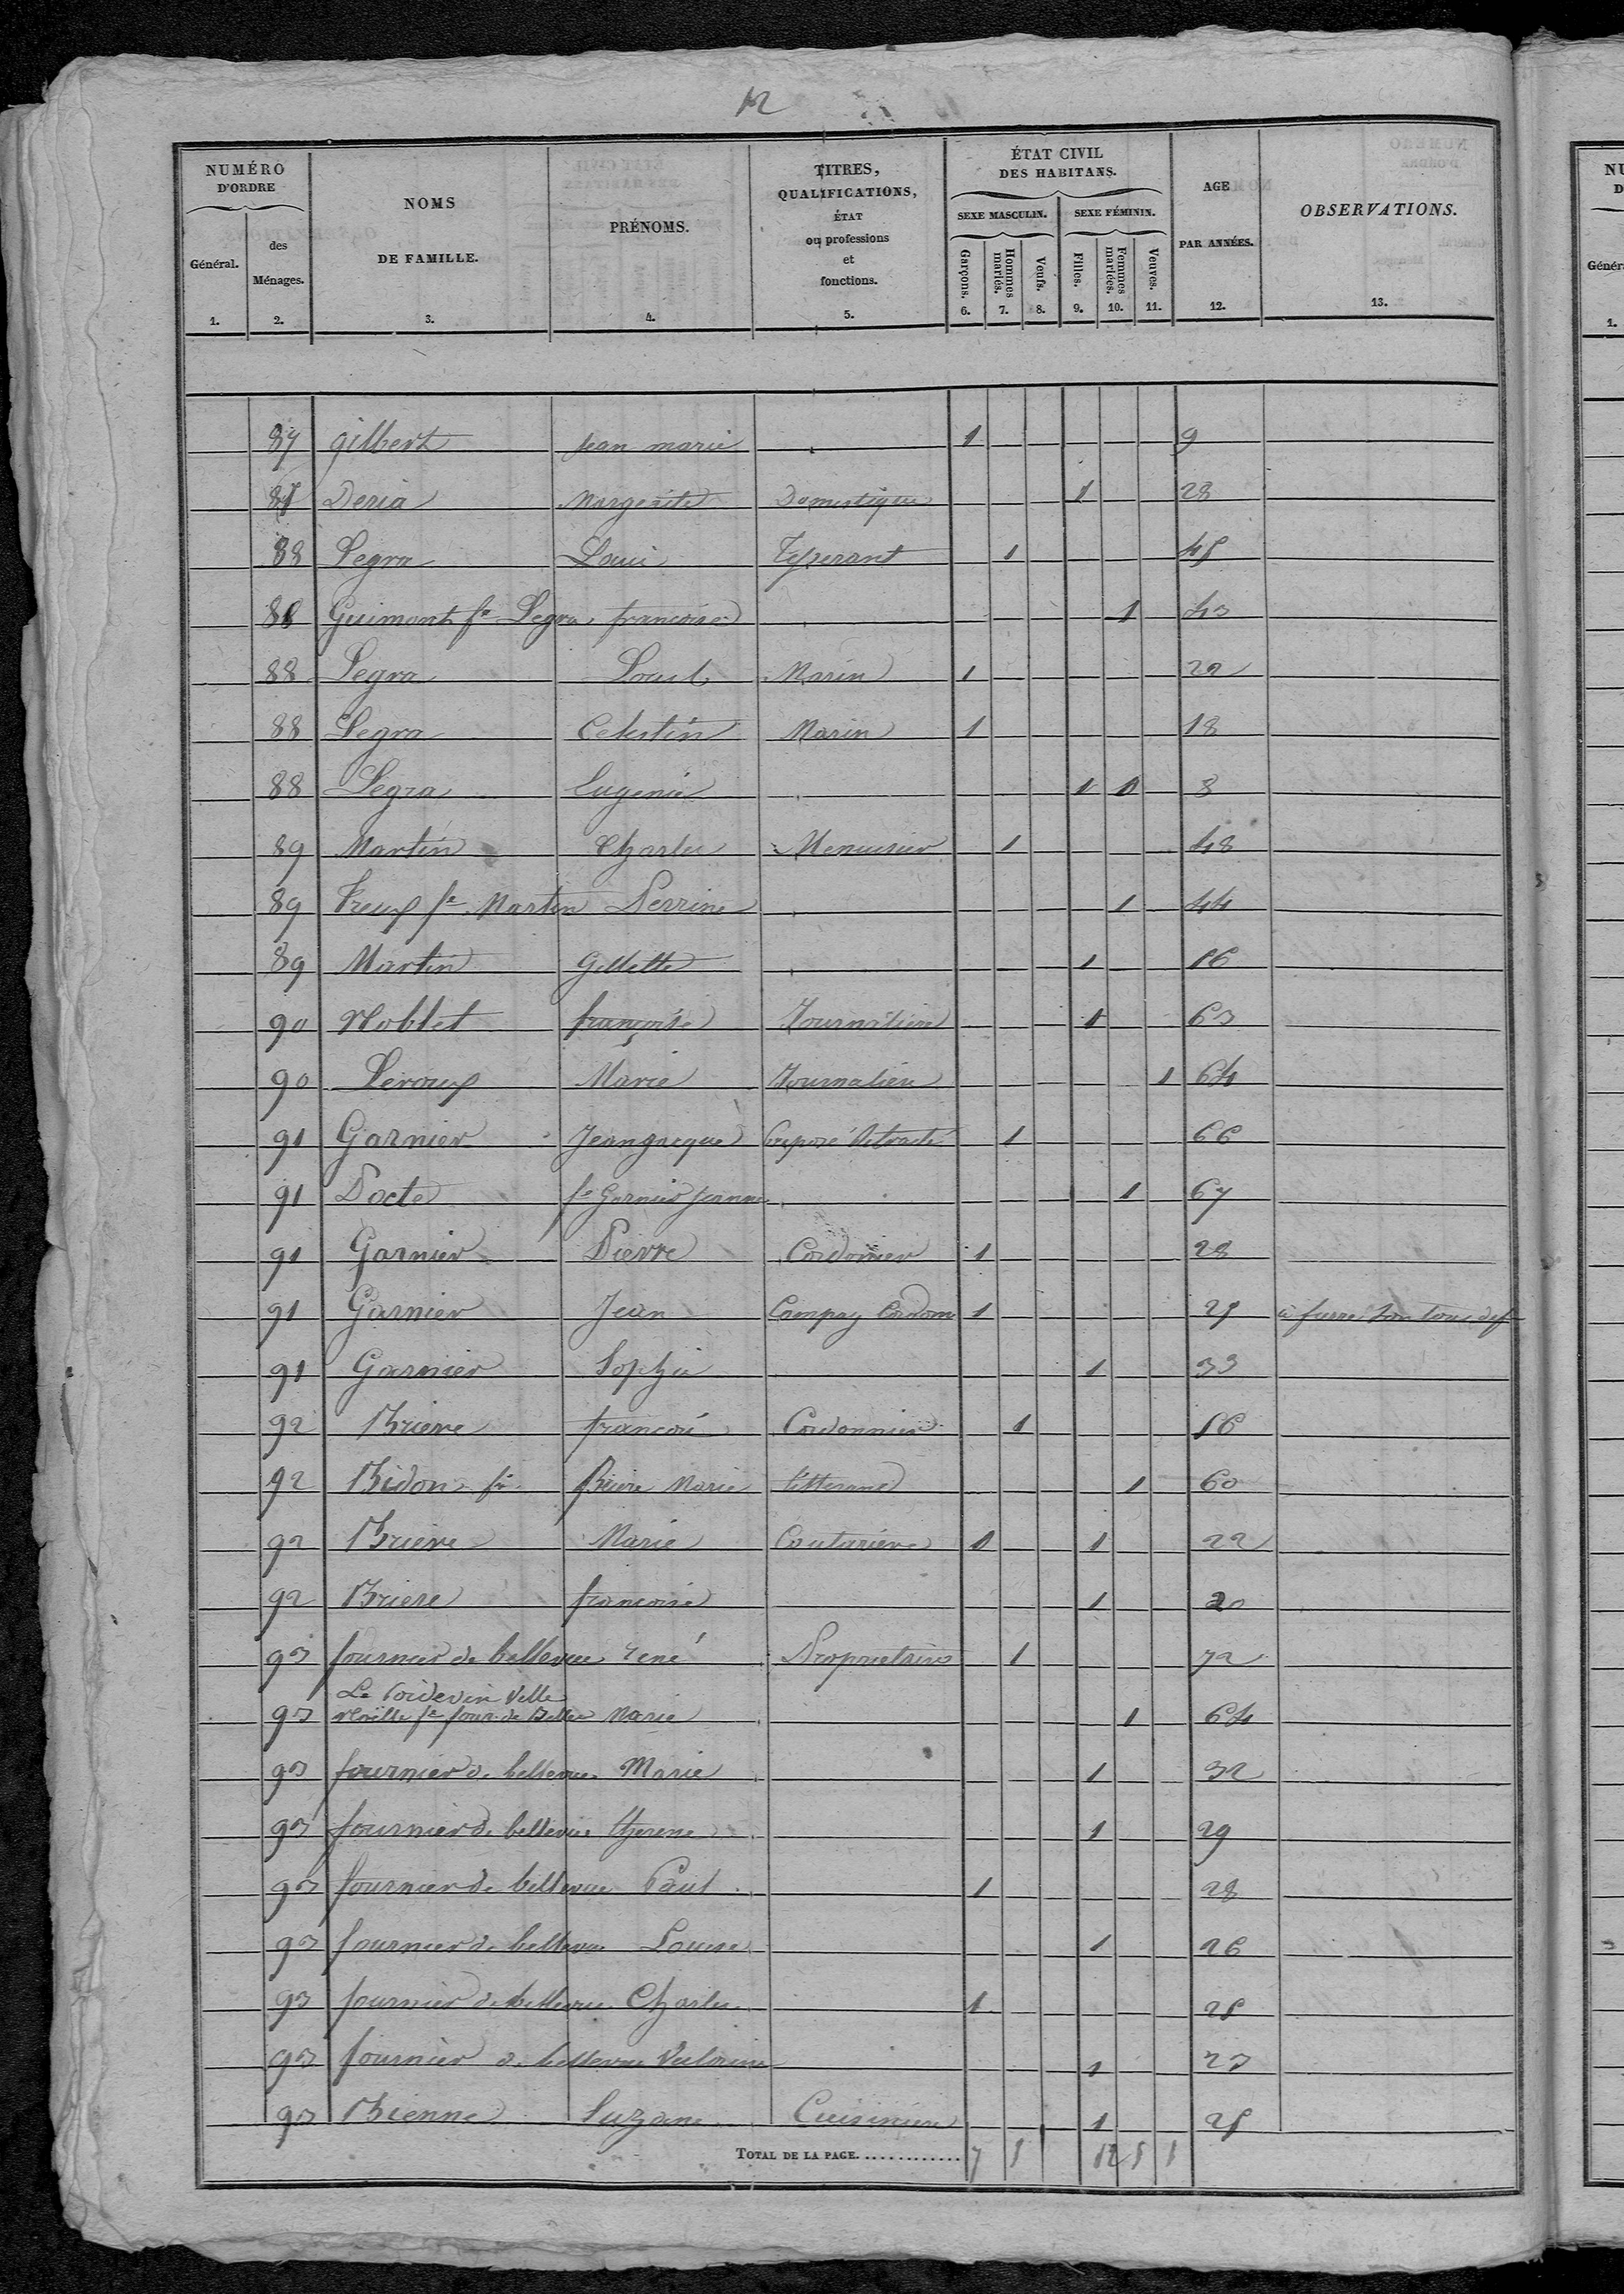 12
NUMÉRO D'ORDRE
Général.
des Ménages.
NOMS DE FAMILLE.
PRÉNOMS.
TITRES, QUALIFICATIONS, ÉTAT ou professions et fonctions.
ÉTAT CIVIL DES HABITANS.
SEXE MASCULIN.
SEXE FÉMININ.
Garçons.
Hommes mariés.
Veufs.
Filles.
Femmes mariées.
Veuves.
AGE PAR ANNÉES.
OBSERVATIONS.
1. 2. 3. 4. 5. 6. 7. 8. 9. 10. 11. 12. 13.
87 gilbert jean marie 1 9
87 Deria Margerite Domestique 1 28
88 Legra Loui 1 45
88 Guimont fe Legra francoise 1 43
88 Legra Marin 1 22
88 Legra Celestin Marin 1 18
88 Legra Eugenie 1 8
89 Martin Charles Menuisier 1 48
89 fe Martin Perrine 1 44
89 Martin Gillette 1 16
90 Noblet françoise Journaliere 1 63
90 Leroux Marie Journaliere 1 64
91 Garnier Jeanjacque 1 66
91 Docte fe Garnier Jeanne 1 67
91 Garnier Pierre Cordonier 1 28
91 Garnier Jean 1 25
91 Garnier Sophie 1 33
92 Briere francoi Cordonnier 1 56
92 Bidon fe Briere Marie 1 60
92 Briere Marie Couturiere 1 22
92 Briere francoise 1 20
93 fournier de bellevue rené Proprietaire 1 72
Le Poidevin Ville
93 Noille fe four. de Belle Marie 1 64
93 fournier de bellevue Marie 1 32
93 fournier de bellevue therese 1 29
93 fournier de bellevue Paul 1 28
93 fournier de bellevue Louise 1 26
93 fournier de bellevue Charles 1 25
93 fournier de bellevue 1 23
93 Bienne Suzane Cuisiniere 1 25
TOTAL DE LA PAGE............. 7 5 12 5 1